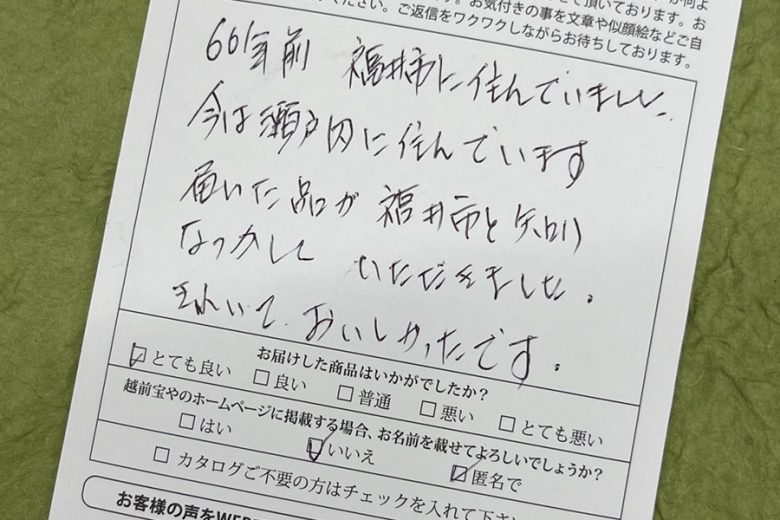 頂いております。お
ください。お気付きの事を文章や似顔絵などご自
ご返信をワクワクしながらお待ちしております。
60年前 福井市に住んでいました.
今は瀬戸内に住んでいます
届いた品が 福井市と知り
なつかしく いただきました.
きれいで. おいしかったです.
お届けした商品はいかがでしたか?
☑とても良い □良い □普通 □悪い □とても悪い
越前宝やのホームページに掲載する場合、お名前を載せてよろしいでしょうか?
□はい ☑いいえ ☑匿名で
□ カタログご不要の方はチェックを入れて下さい
お客様の声をWEB